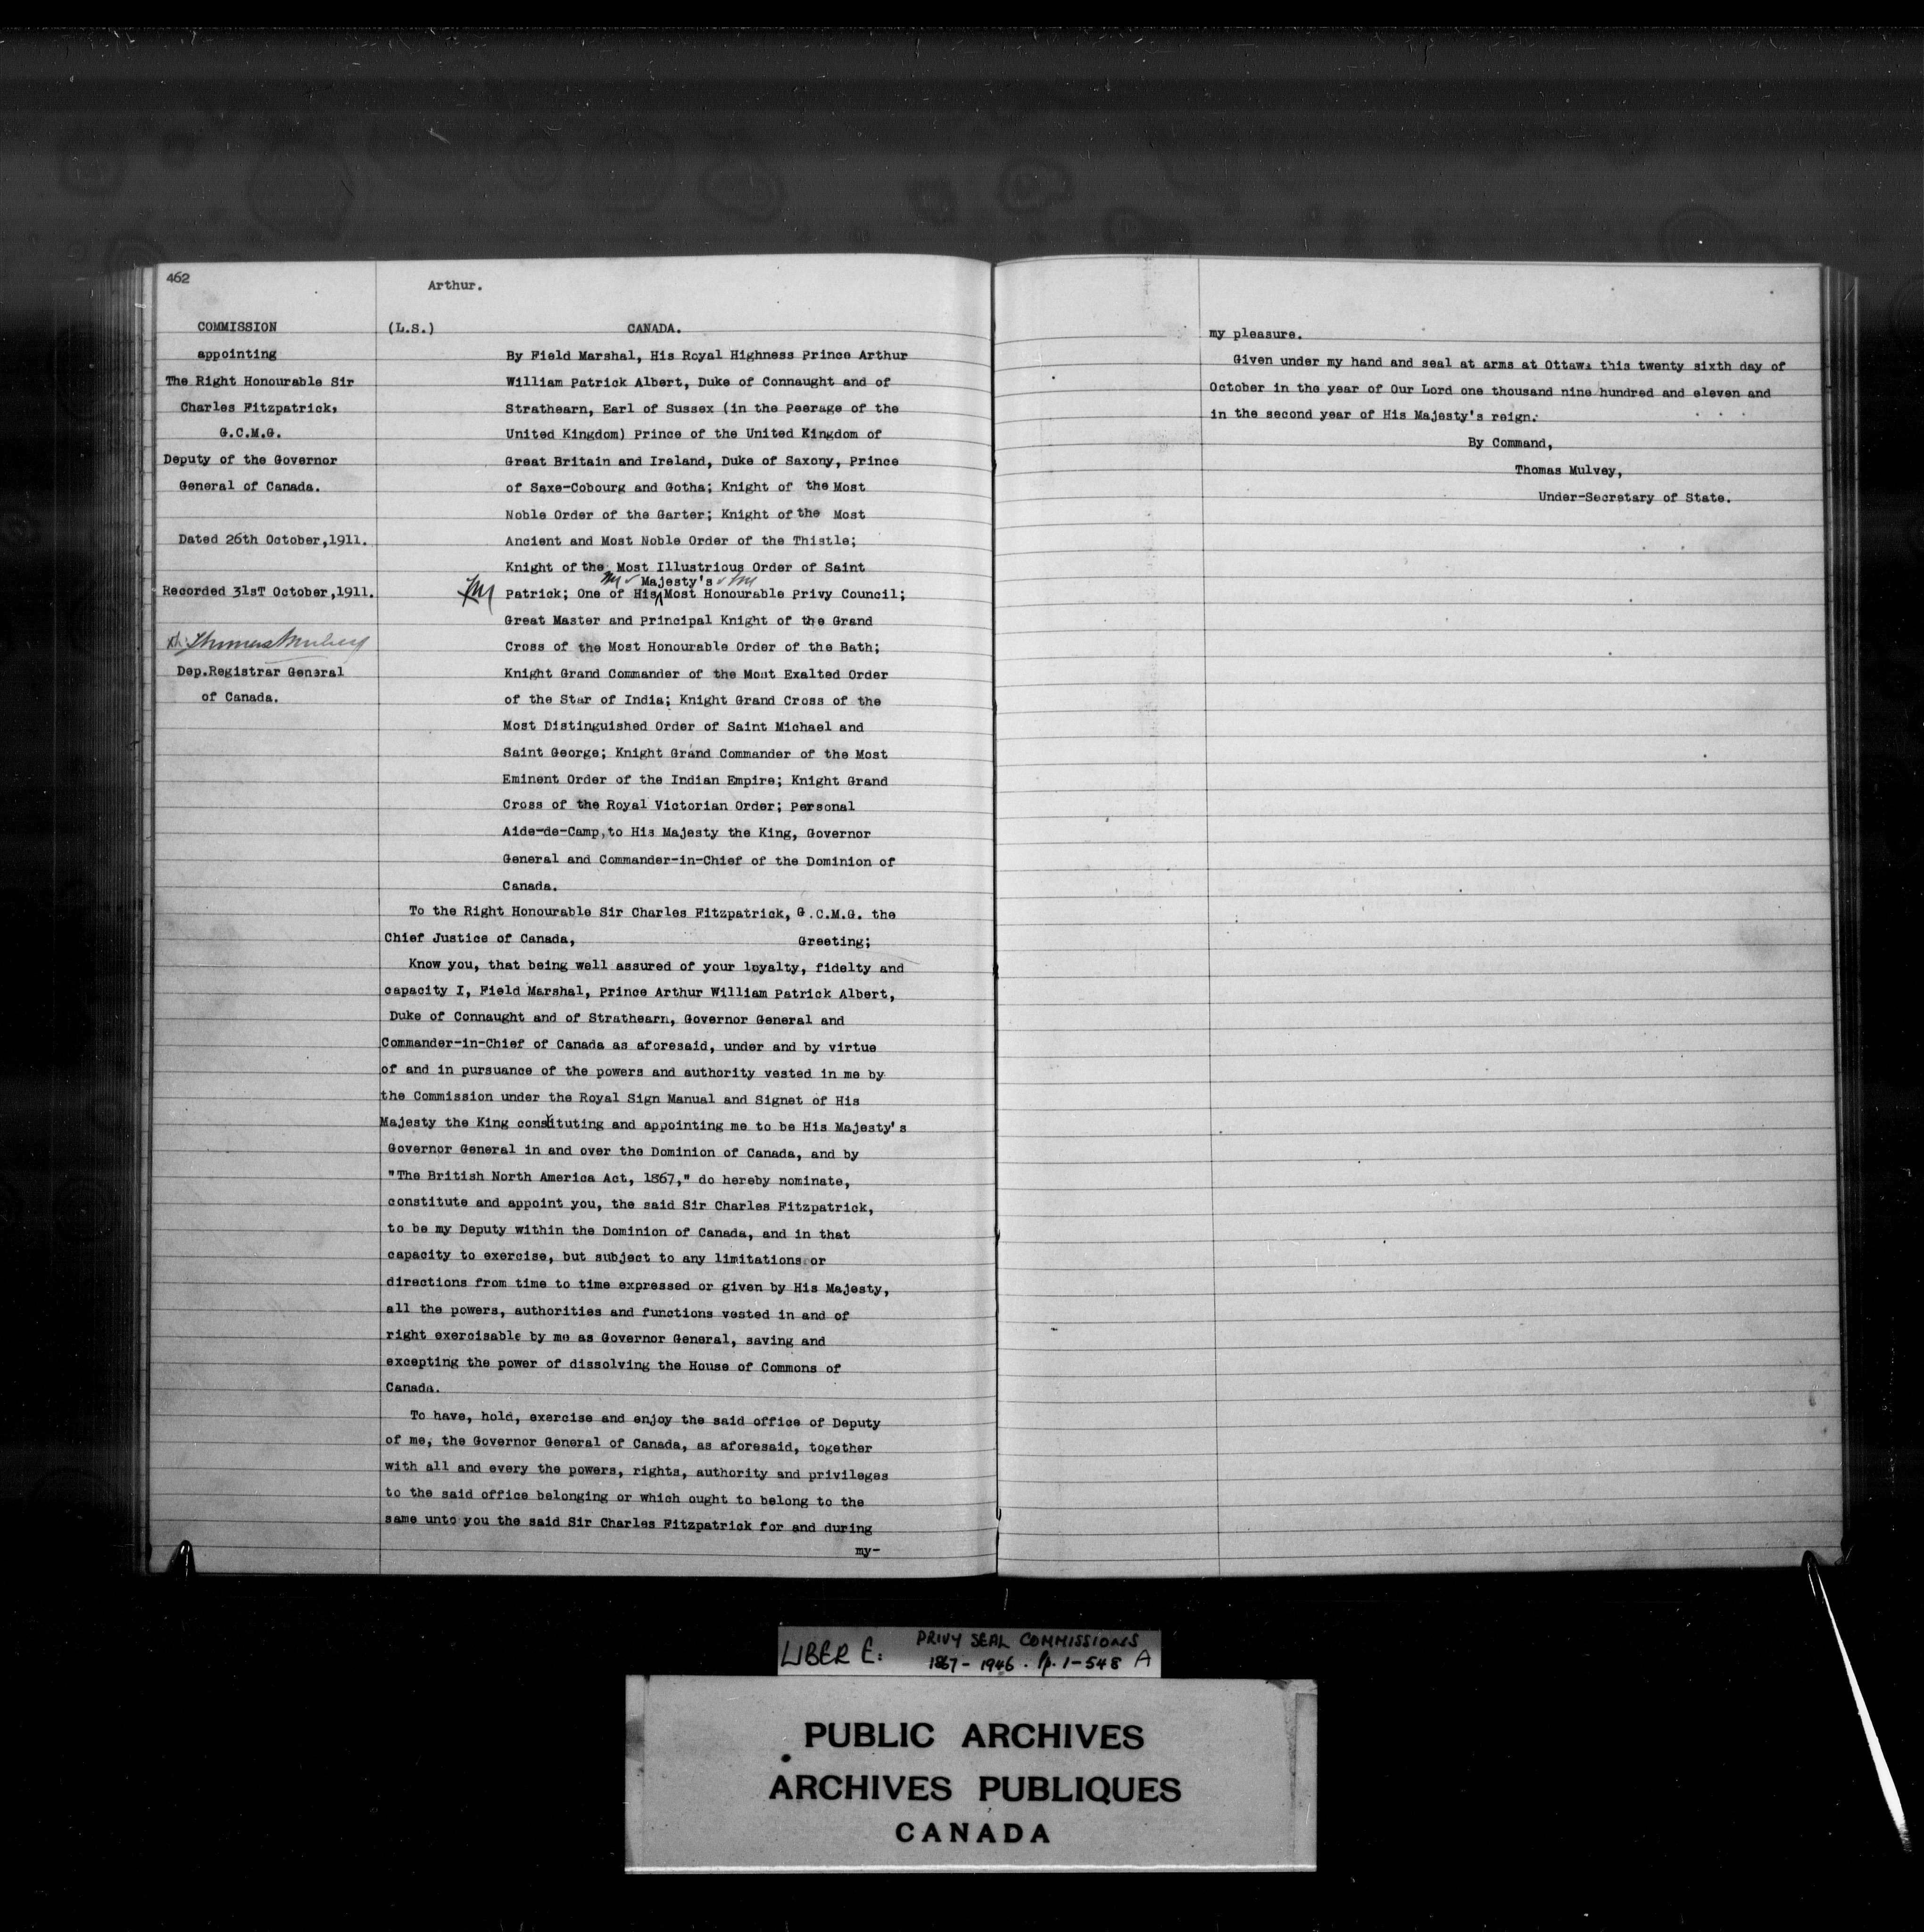 462
COMMISSION
appointing
The Right Honourable Sir
Charles Fitzpatrick,
G.C.M.G.
Deputy of the Governor
General of Canada.
Dated 26th October,1911.
Recorded 31sT October,1911.
Thomas Mulvey
Dep.Registrar General
of Canada.
Arthur.
(L.S.) CANADA.
By Field Marshal, His Royal Highness Prince Arthur
William Patrick Albert, Duke of Connaught and of
Strathearn, Earl of Sussex (in the Peerage of the
United Kingdom) Prince of the United Kingdom of
Great Britain and Ireland, Duke of Saxony, Prince
of Saxe-Cobourg and Gotha; Knight of the Most
Noble Order of the Garter; Knight of the Most
Ancient and Most Noble Order of the Thistle;
Knight of the Most Illustrious Order of Saint
TM TM Majesty's TM
Patrick; One of His Most Honourable Privy Council;
Great Master and Principal Knight of the Grand
Cross of the Most Honourable Order of the Bath;
Knight Grand Commander of the Most Exalted Order
of the Star of India; Knight Grand Cross of the
Most Distinguished Order of Saint Michael and
Saint George; Knight Grand Commander of the Most
Eminent Order of the Indian Empire; Knight Grand
Cross of the Royal Victorian Order; Personal
Aide-de-Camp,to His Majesty the King, Governor
General and Commander-in-Chief of the Dominion of
Canada.
To the Right Honourable Sir Charles Fitzpatrick, G.C.M.G. the
Chief Justice of Canada, Greeting;
Know you, that being well assured of your loyalty, fidelty and
capacity I, Field Marshal, Prince Arthur William Patrick Albert,
Duke of Connaught and of Strathearn, Governor General and
Commander-in-Chief of Canada as aforesaid, under and by virtue
of and in pursuance of the powers and authority vested in me by
the Commission under the Royal Sign Manual and Signet of His
Majesty the King constituting and appointing me to be His Majesty's
Governor General in and over the Dominion of Canada, and by
"The British North America Act, 1867," do hereby nominate,
constitute and appoint you, the said Sir Charles Fitzpatrick,
to be my Deputy within the Dominion of Canada, and in that
capacity to exercise, but subject to any limitations or
directions from time to time expressed or given by His Majesty,
all the powers, authorities and functions vested in and of
right exercisable by me as Governor General, saving and
excepting the power of dissolving the House of Commons of
Canada.
To have, hold, exercise and enjoy the said office of Deputy
of me, the Governor General of Canada, as aforesaid, together
with all and every the powers, rights, authority and privileges
to the said office belonging or which ought to belong to the
same unto you the said Sir Charles Fitzpatrick for and during
my-
my pleasure.
Given under my hand and seal at arms at Ottawa this twenty sixth day of
October in the year of Our Lord one thousand nine hundred and eleven and
in the second year of His Majesty's reign.
By Command,
Thomas Mulvey,
Under-Secretary of State.
LIBER E: PRIVY SEAL COMMISSIONS
1867-1946. Pp. 1-548 A
PUBLIC ARCHIVES
ARCHIVES PUBLIQUES
CANADA